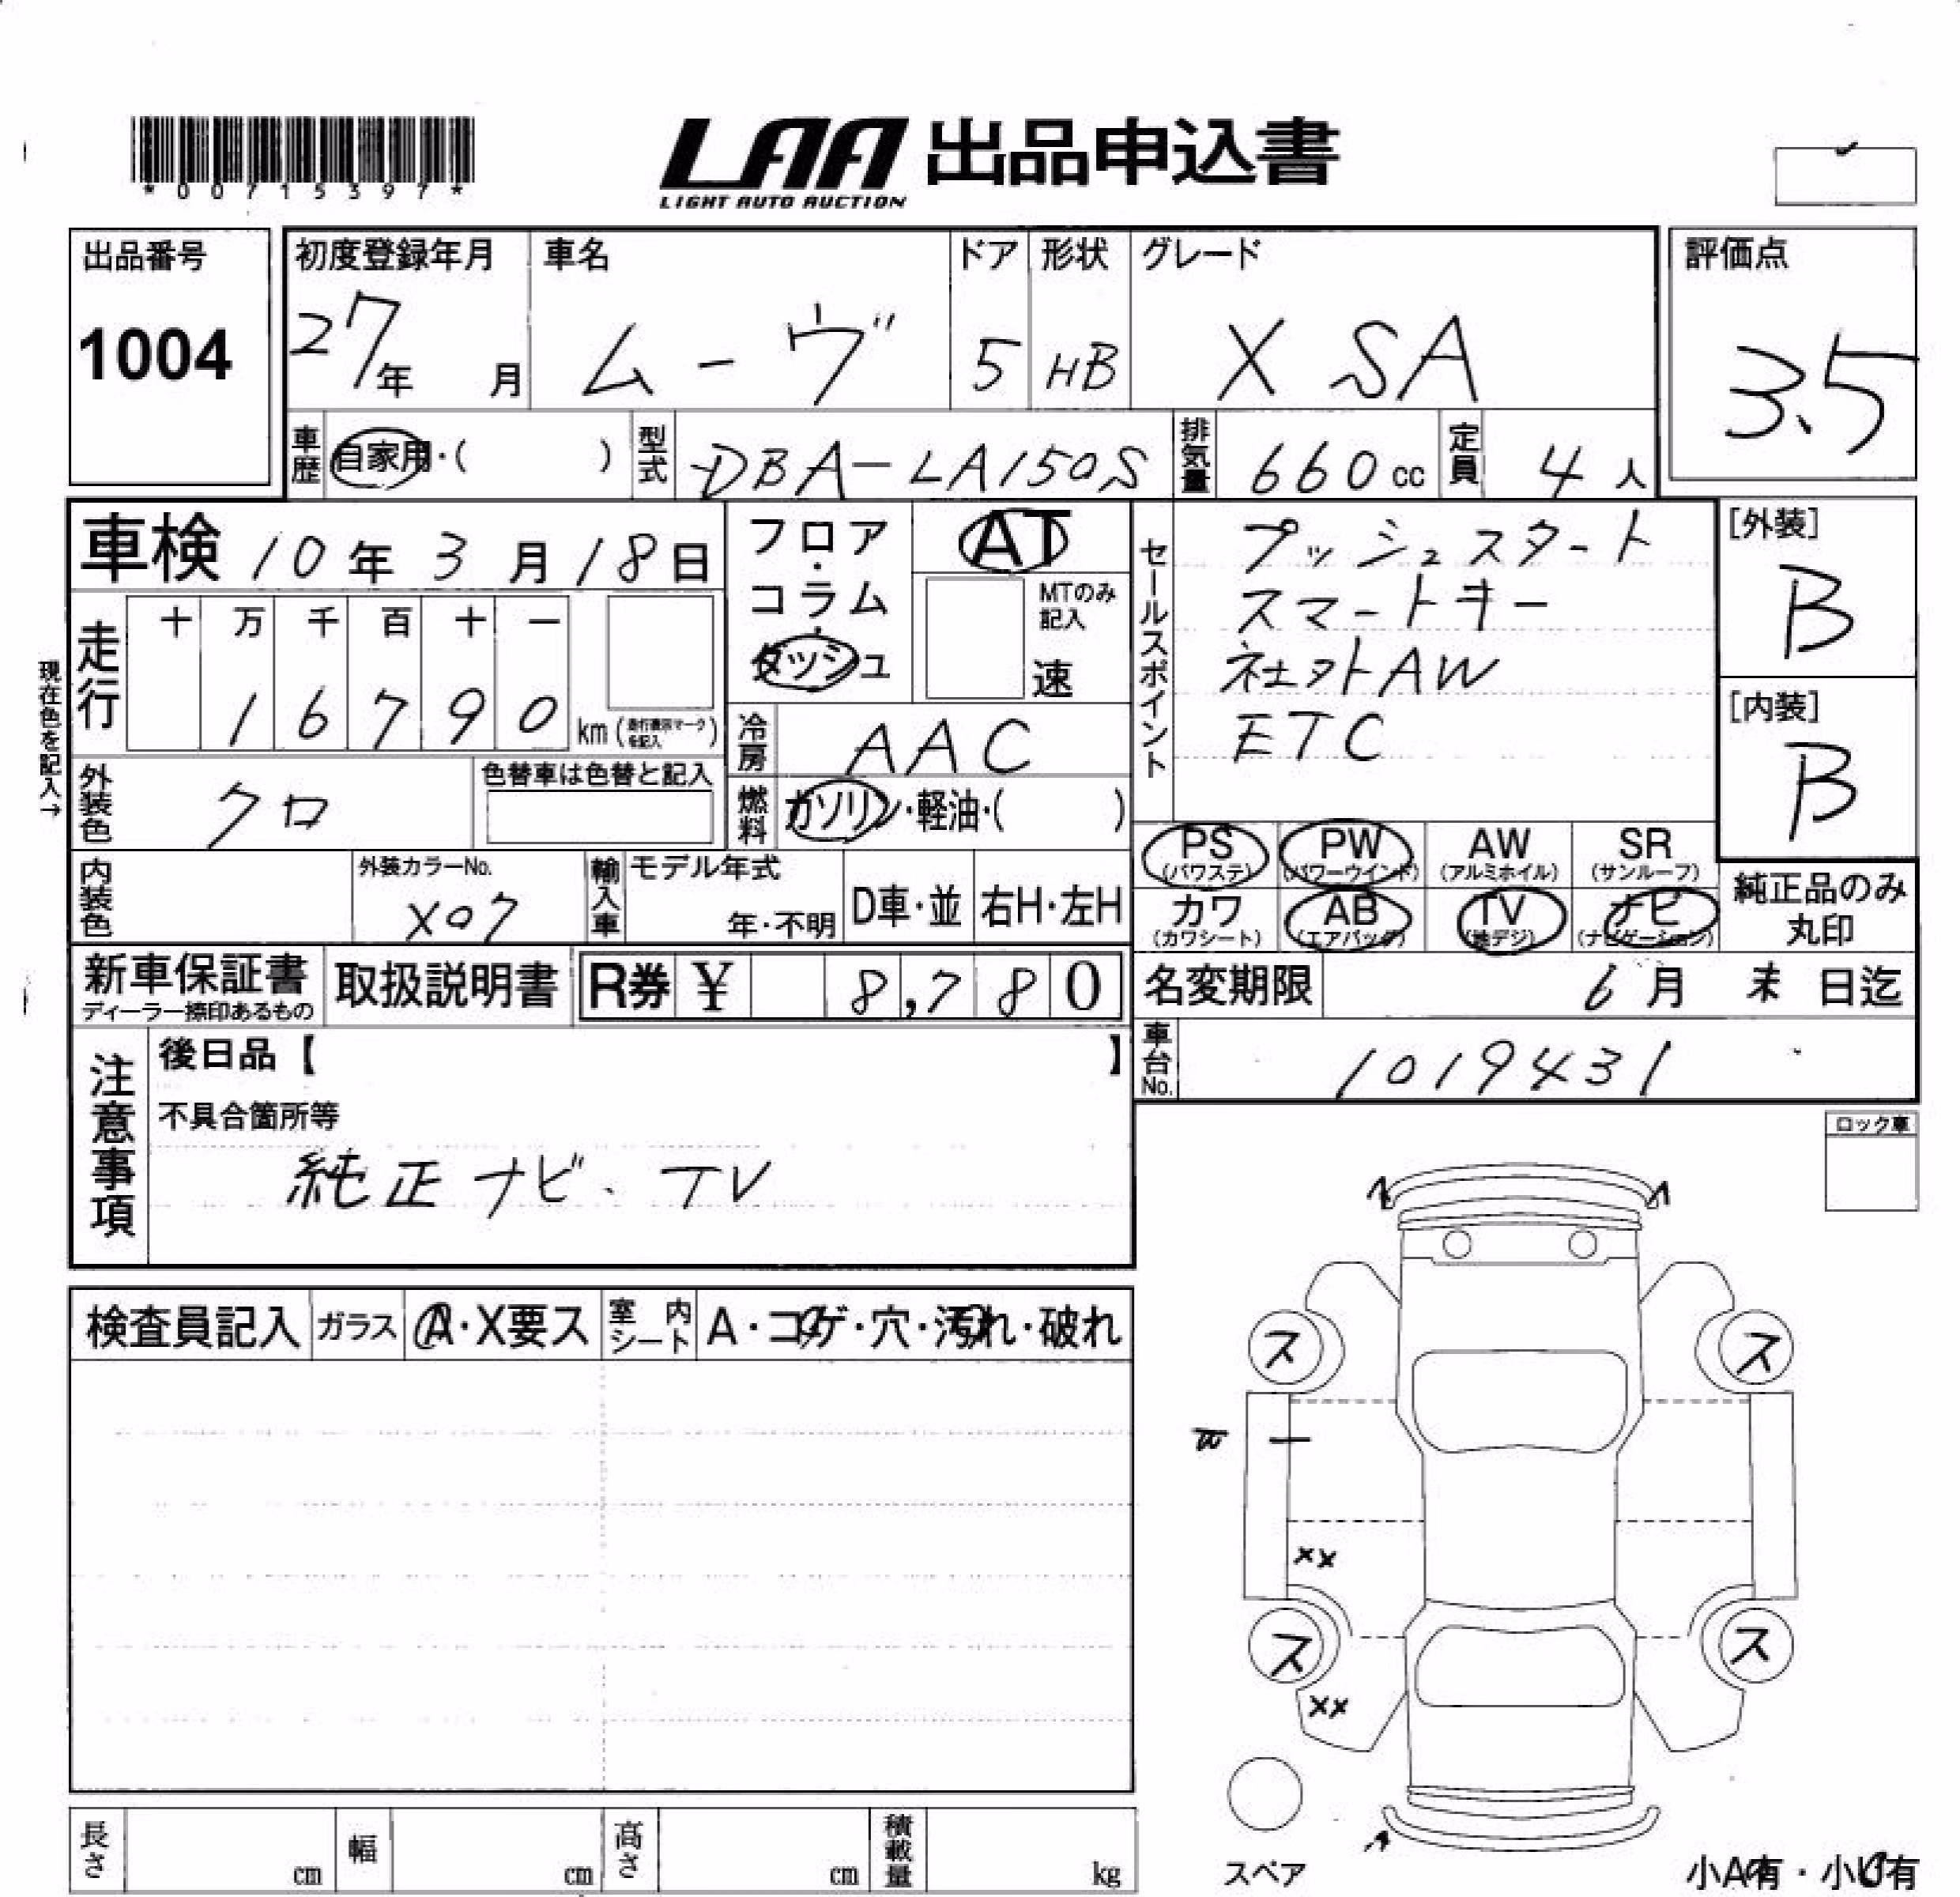 *00715397*
LAA 出品申込書
LIGHT AUTO AUCTION
出品番号
1004
初度登録年月
27年 月
車名
ムーヴ
ドア
5
形状
HB
グレード
X SA
評価点
3.5
車歴
自家用・( )
型式
DBA-LA150S
排気量
660cc
定員
4人
車検 10年3月18日
フロア・コラム・ダッシュ
AT
MTのみ記入
速
セールスポイント
プッシュスタート
スマートキー
社外AW
ETC
[外装]
B
[内装]
B
現在色を記入→
走行
十 万 千 百 十 一
1 6 7 9 0 km(走行表示マークを記入)
冷房
AAC
外装色
クロ
色替車は色替と記入
燃料
ガソリン・軽油・( )
PS (パワステ)
PW (パワーウインド)
AW (アルミホイル)
SR (サンルーフ)
カワ (カワシート)
AB (エアバッグ)
TV (地デジ)
ナビ (ナビゲーション)
純正品のみ丸印
内装色
外装カラーNo.
X07
輸入車
モデル年式
年・不明
D車・並
右H・左H
新車保証書
ディーラー捺印あるもの
取扱説明書
R券 ¥ 8,780
名変期限
6月 末 日迄
車台No.
1019431
注意事項
後日品【 】
不具合箇所等
純正ナビ、TV
ロック車
検査員記入
ガラス
A・X要ス
室内シート
A・コゲ・穴・汚れ・破れ
ス
ス
xx
ス
ス
xx
スペア
小A有・小U有
長さ cm
幅 cm
高さ cm
積載量 kg